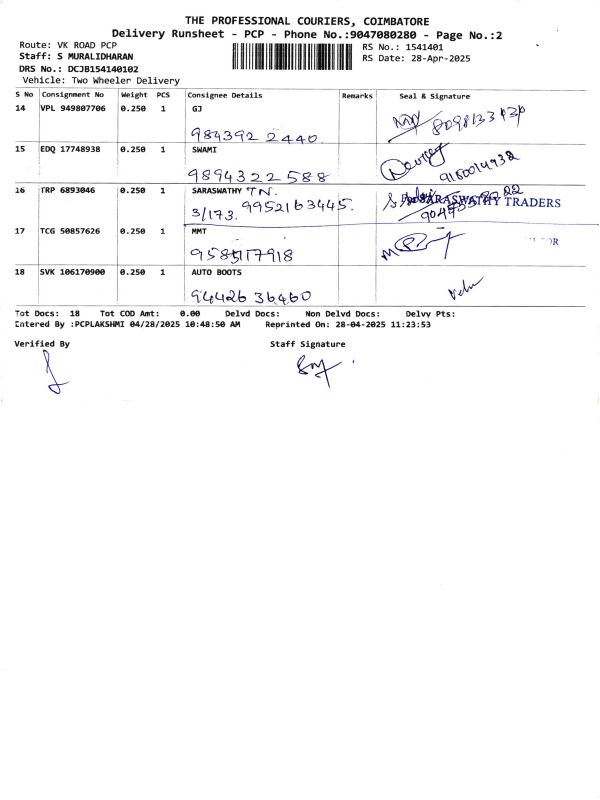 THE PROFESSIONAL COURIERS, COIMBATORE
Delivery Runsheet - PCP - Phone No.:9047080280 - Page No.:2
Route: VK ROAD PCP
RS No.: 1541401
Staff: S MURALIDHARAN
RS Date: 28-Apr-2025
DRS No.: DCJB154140102
Vehicle: Two Wheeler Delivery
S No Consignment No Weight PCS Consignee Details Remarks Seal & Signature
14 VPL 949807706 0.250 1 GJ
984392 2440.
15 EDQ 17748938 0.250 1 SWAMI
9894322588
9160014932
16 TRP 6893046 0.250 1 SARASWATHY TN.
3/173. 9952163445.
SARASWATHY TRADERS
17 TCG 50857626 0.250 1 MMT
18 SVK 106170900 0.250 1 AUTO BOOTS
94426 36460
Tot Docs: 18 Tot COD Amt: 0.00 Delvd Docs: Non Delvd Docs: Delvy Pts:
Entered By :PCPLAKSHMI 04/28/2025 10:48:50 AM Reprinted On: 28-04-2025 11:23:53
Verified By Staff Signature